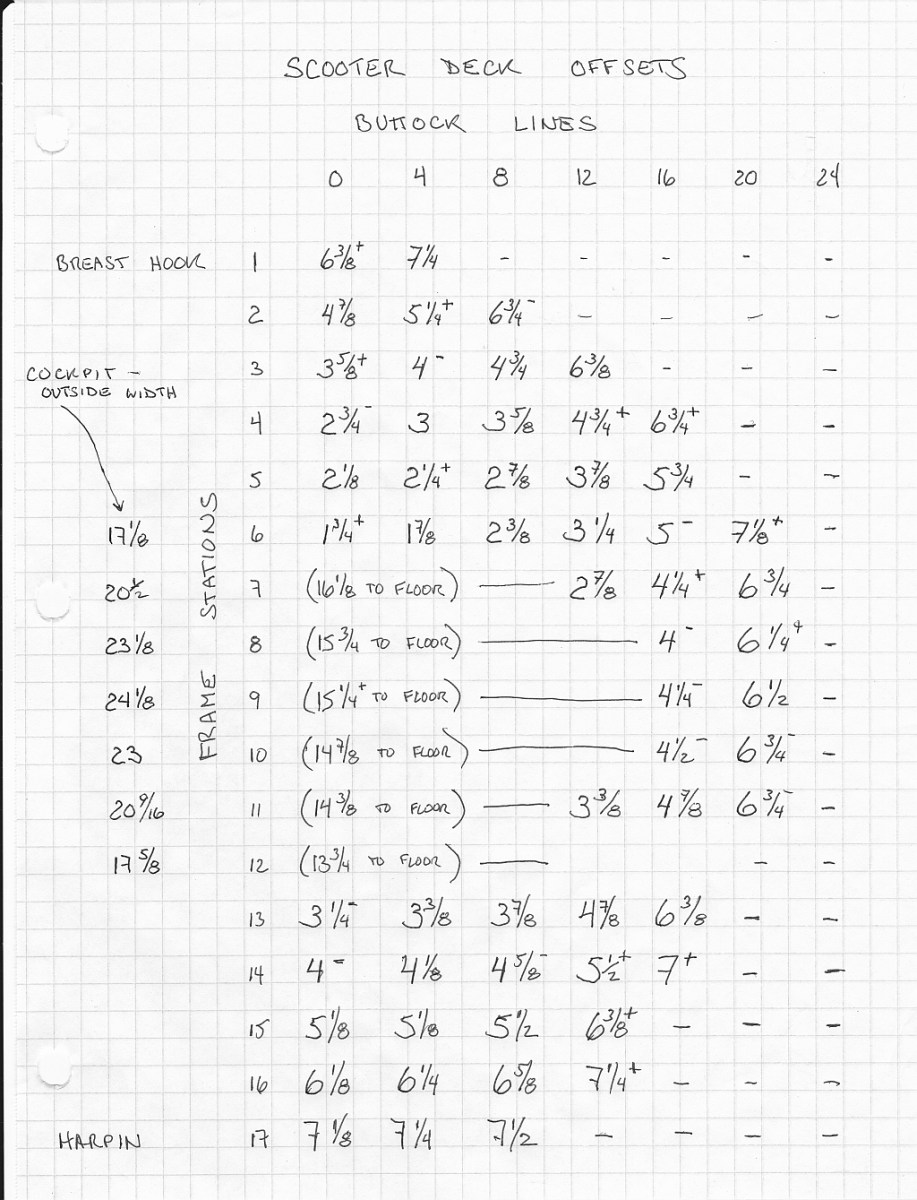 SCOOTER DECK OFFSETS
BUTTOCK LINES
0 4 8 12 16 20 24
BREAST HOOK 1 6 3/8+ 7 1/4 - - - - -
2 4 7/8 5 1/4+ 6 3/4- - - - -
3 3 5/8+ 4- 4 3/4 6 3/8 - - -
COCKPIT -
OUTSIDE WIDTH
4 2 3/4- 3 3 5/8 4 3/4+ 6 3/4+ - -
5 2 1/8 2 1/4+ 2 7/8 3 7/8 5 3/4 - -
FRAME STATIONS
17 1/8 6 1 3/4+ 1 7/8 2 3/8 3 1/4 5- 7 1/8+ -
20 1/2 7 (16 1/8 TO FLOOR) — 2 7/8 4 1/4+ 6 3/4 -
23 1/8 8 (15 3/4 TO FLOOR) — 4- 6 1/4+ -
24 1/8 9 (15 1/4+ TO FLOOR) — 4 1/4- 6 1/2 -
23 10 (14 7/8 TO FLOOR) — 4 1/2- 6 3/4- -
20 9/16 11 (14 3/8 TO FLOOR) — 3 3/8 4 7/8 6 3/4- -
17 5/8 12 (13 3/4 TO FLOOR) — - -
13 3 1/4- 3 3/8 3 7/8 4 7/8 6 3/8 - -
14 4- 4 1/8 4 5/8- 5 1/2+ 7+ - -
15 5 1/8 5 1/8 5 1/2 6 3/8+ - - -
16 6 1/8 6 1/4 6 5/8 7 1/4+ - - -
HARPIN 17 7 1/8 7 1/4 7 1/2 - - - -